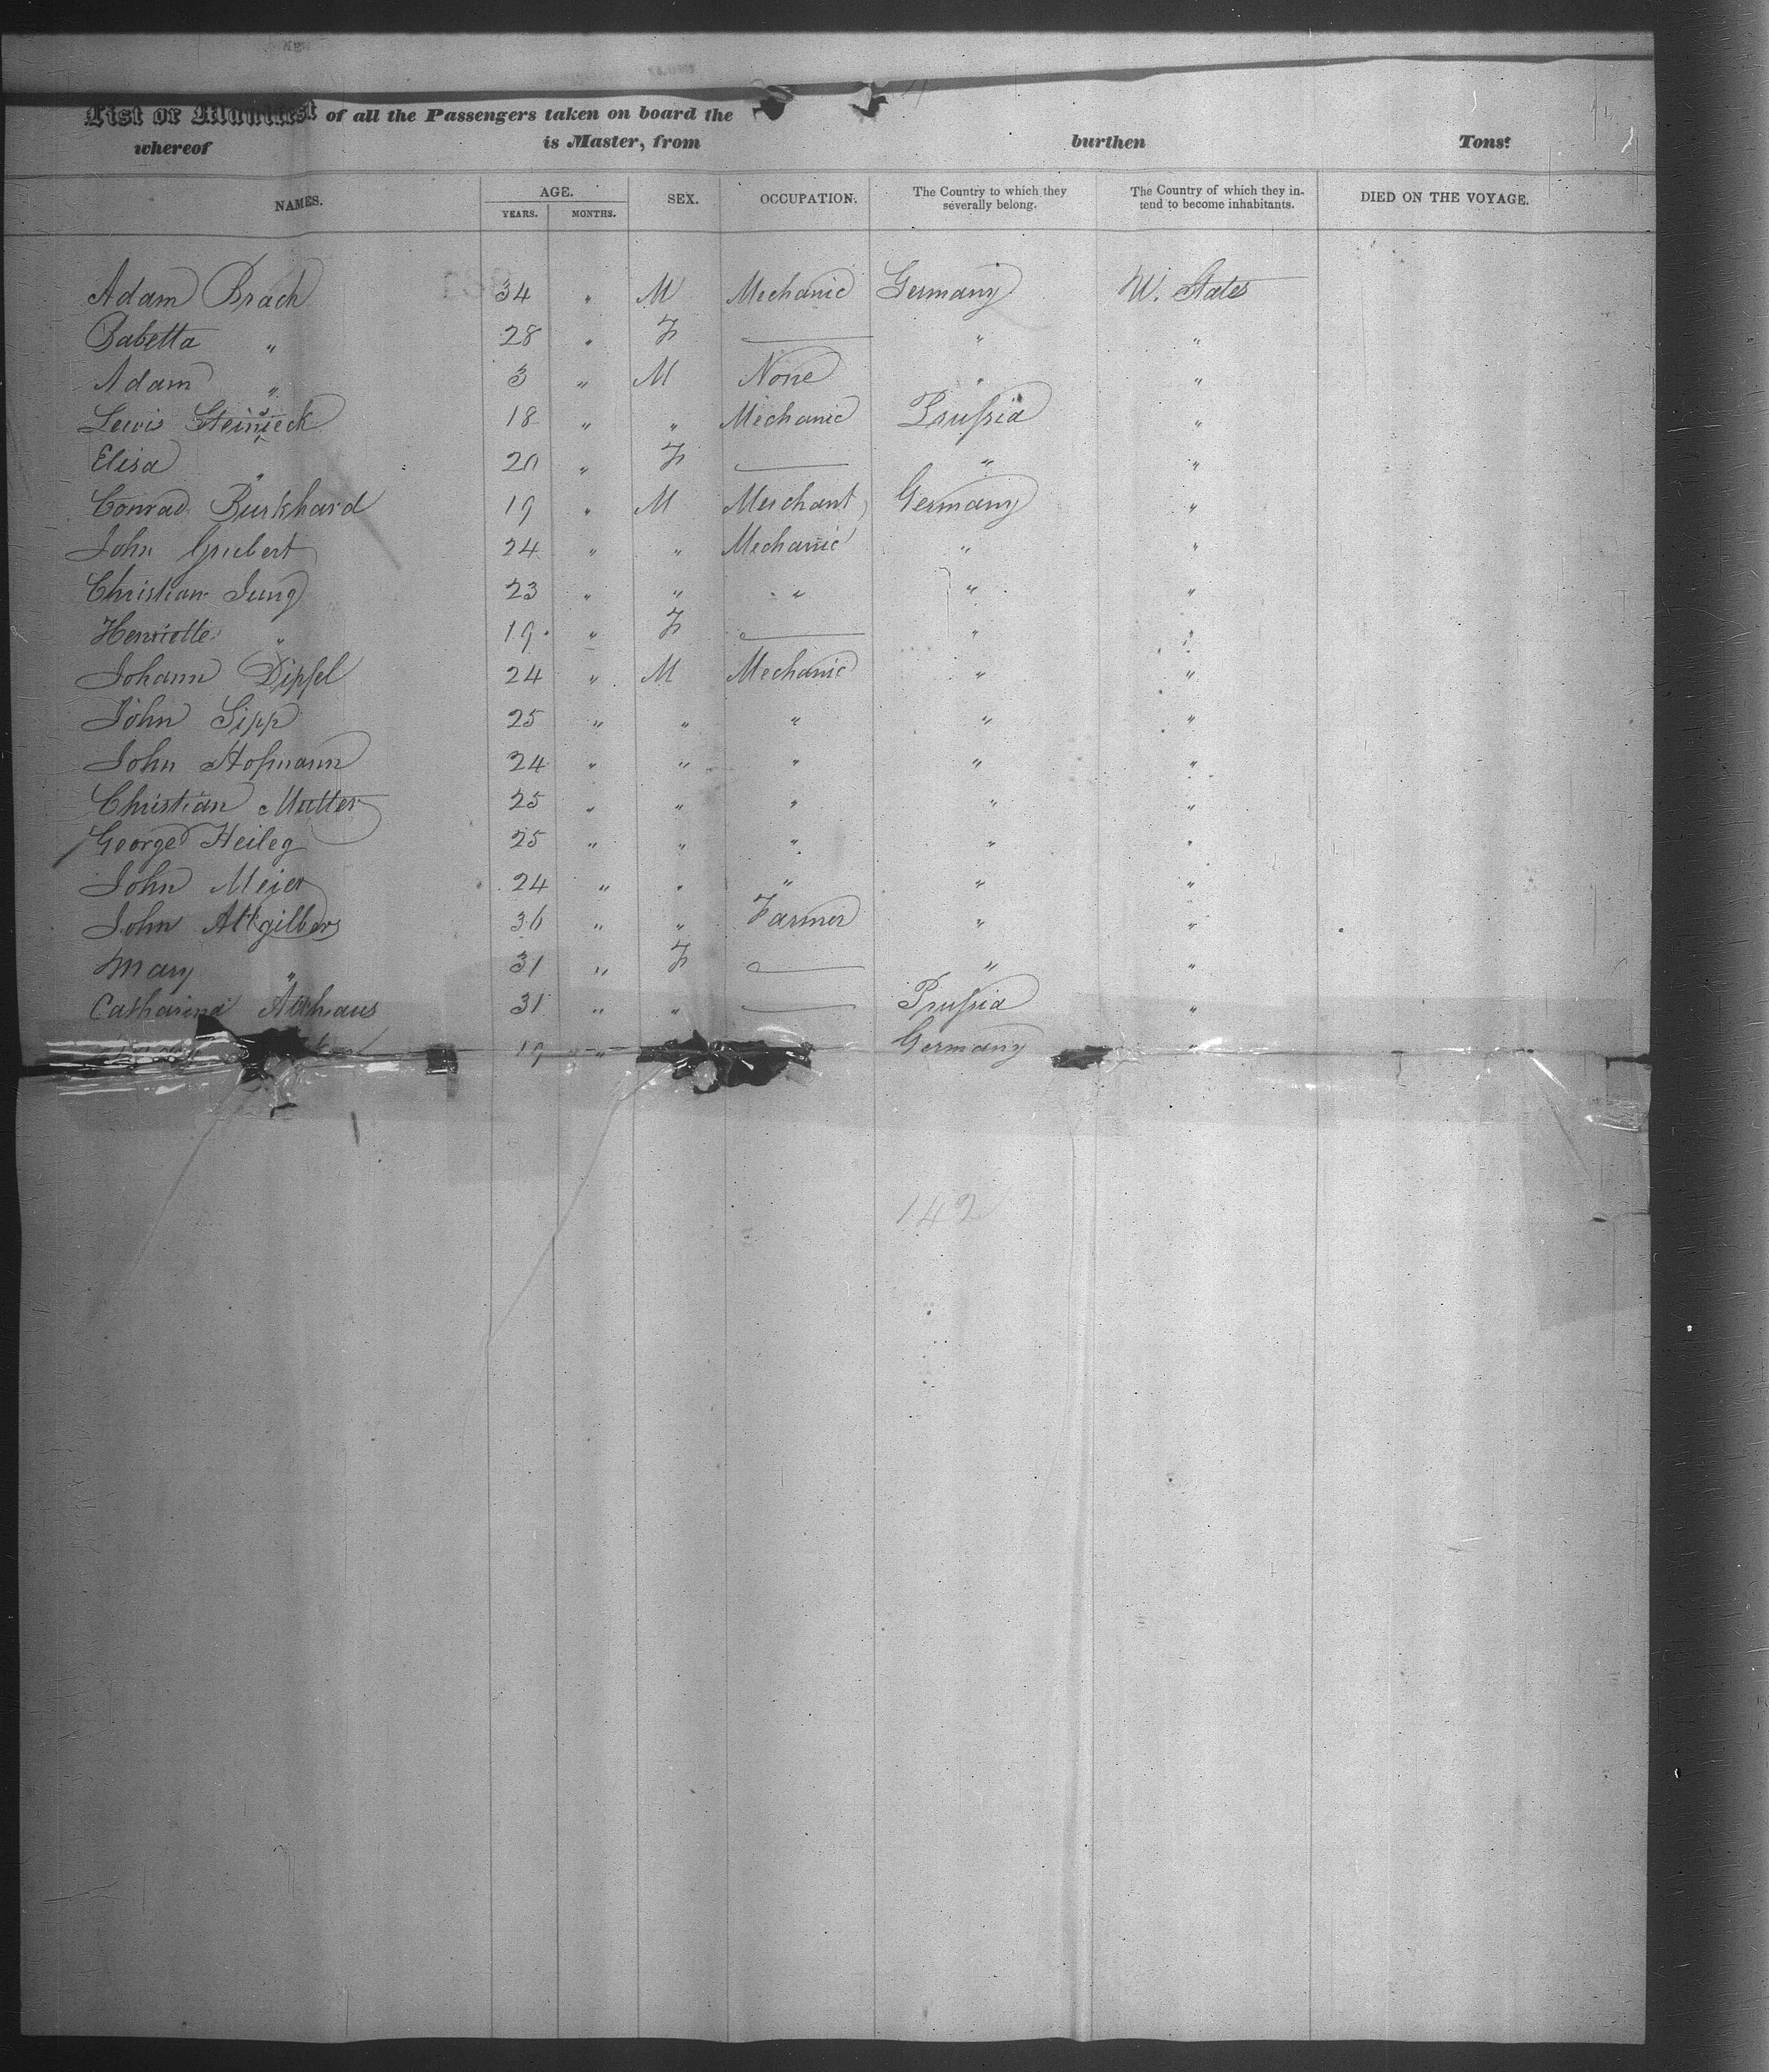 List or Manifest of all the Passengers taken on board the
whereof is Master, from burthen Tons:
NAMES. AGE. YEARS. MONTHS. SEX. OCCUPATION. The Country to which they severally belong. The Country of which they intend to become inhabitants. DIED ON THE VOYAGE.
Adam Brach 34 " M Mechanic Germany U. States
Babetta " 28 " F — " "
Adam " 3 " M None " "
Lewis 18 " " Mechanic Prussia "
Elisa " 20 " F — " "
Conrad Burkhard 19 " M Merchant Germany "
John Grubert 24 " " Mechanic " "
Christian Jung 23 " " " " "
Henriette " 19 " F — " "
Johann Dipfel 24 " M Mechanic " "
John Sipp 25 " " " " "
John Hofmann 24 " " " " "
Christian Mutter 25 " " " " "
George Heileg 25 " " " " "
John Meier 24 " " " " "
John 36 " " Farmer " "
Mary " 31 " F — " "
Catharina Althaus 31 " " — Prussia "
19 " Germany "
142